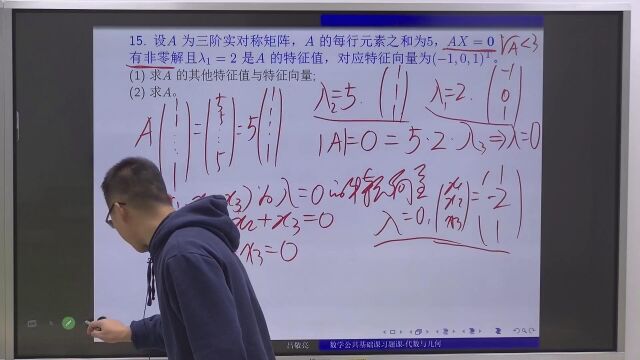 15. 设A 为三阶实对称矩阵，A 的每行元素之和为5，AX = 0
有非零解且λ₁ = 2 是A 的特征值，对应特征向量为(−1, 0, 1)ᵀ.
(1) 求A 的其他特征值与特征向量;
(2) 求A。
rA<3
λ₂=5. (1 1 1) λ₁=2. (-1 0 1)
A(1 1 ⋮ 1) = (5 5 ⋮ 5) = 5(1 1 ⋮ 1)
|A|=0 = 5·2·λ₃ ⇒ λ=0
x₃) 为 λ=0 的特征向量
x₂+x₃=0
λ=0, (x₁ x₂ x₃) = (1 -2 1)
x₃=0
吕敬亮 数学公共基础课习题课-代数与几何